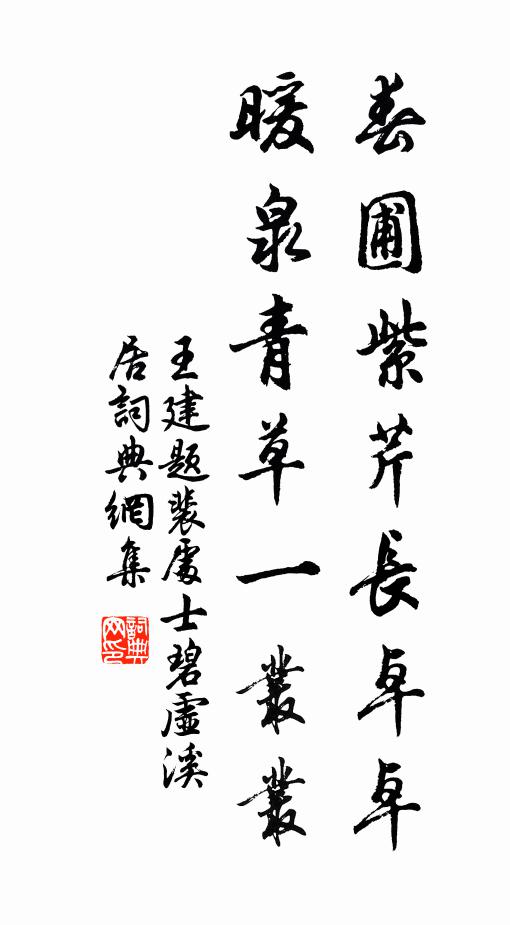 春圃紫芹長卓卓
暖泉青草一叢叢
王建題裴處士碧虛溪
居詞典網集
詞典网印